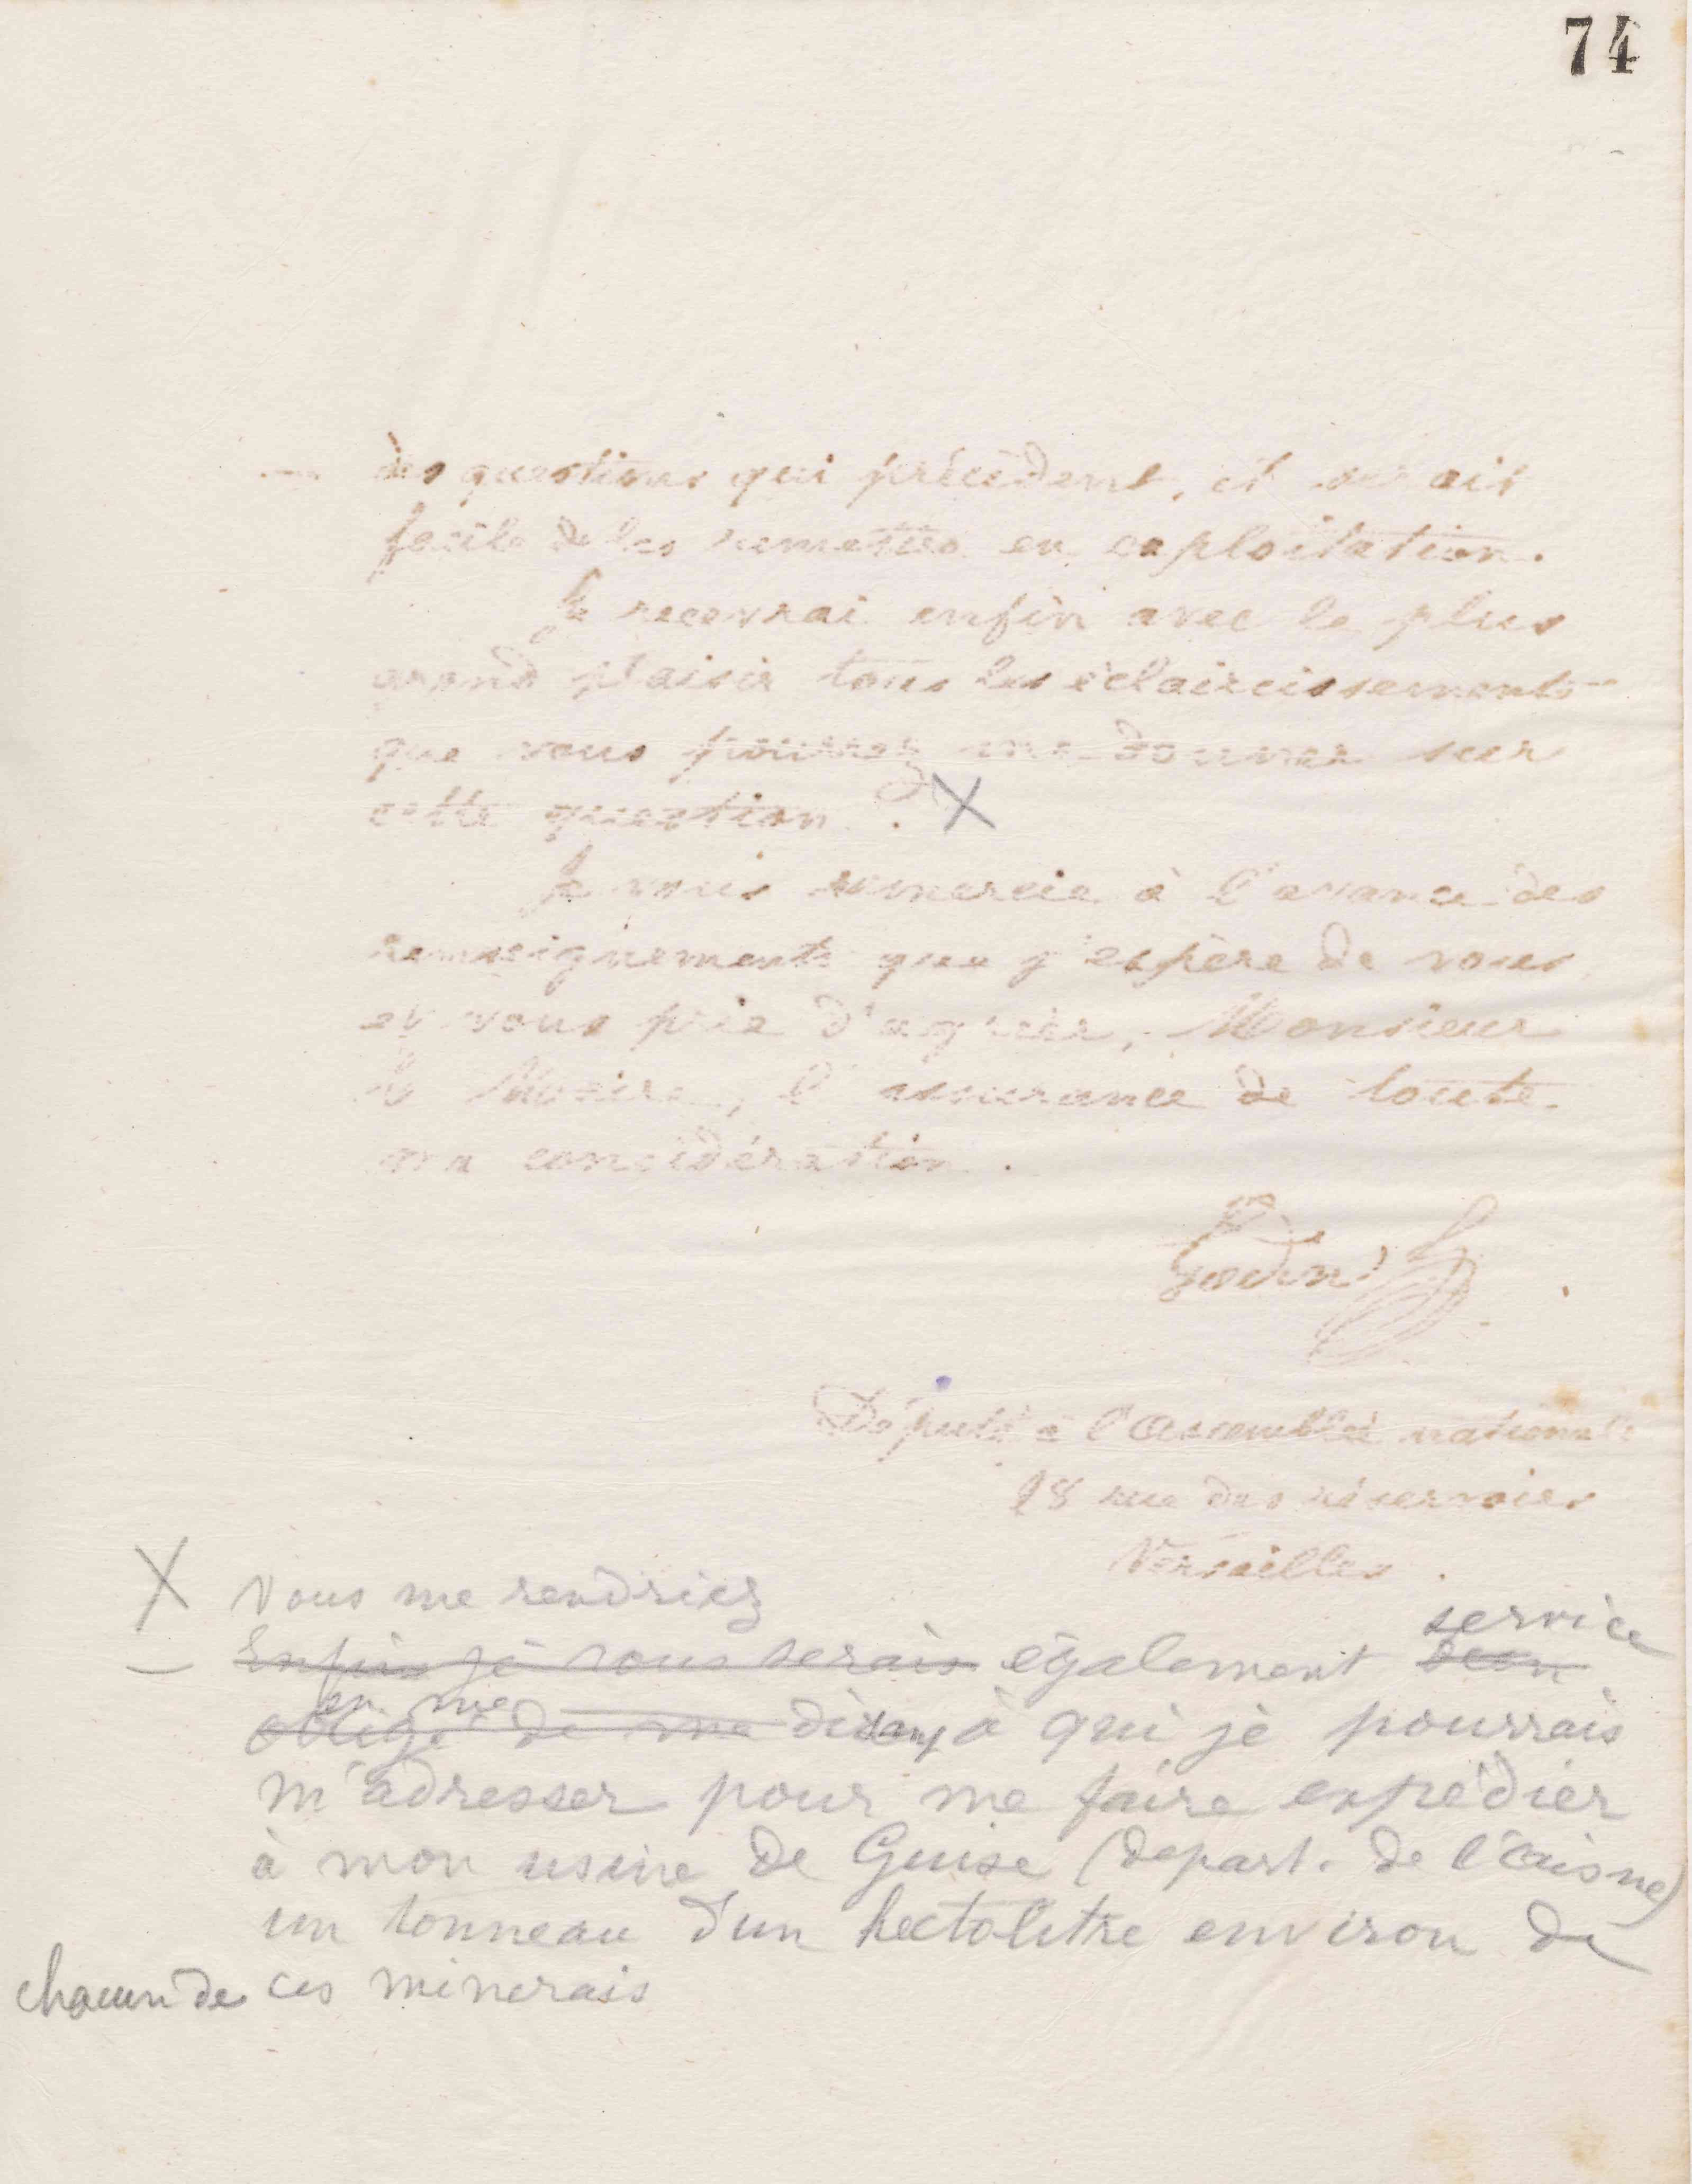 74
des questions qui précèdent, il serait
facile de les remettre en exploitation.
Je recevrai enfin avec le plus
grand plaisir tous les éclaircissements
que vous pourrez me donner sur
cette question. X
Je vous remercie à l'avance des
renseignements que j'espère de vous
et vous prie d'agréer, Monsieur
le Maire, l'assurance de toute
ma considération.
Godin
Député à l'Assemblée nationale
28 rue des réservoirs
Versailles.
X Vous me rendriez
service
— Enfin je vous serais également
en me
obligé de me disant à qui je pourrais
m'adresser pour me faire expédier
à mon usine de Guise (depart. de l'aisne)
un tonneau d'un hectolitre environ de
chacun de ces minerais